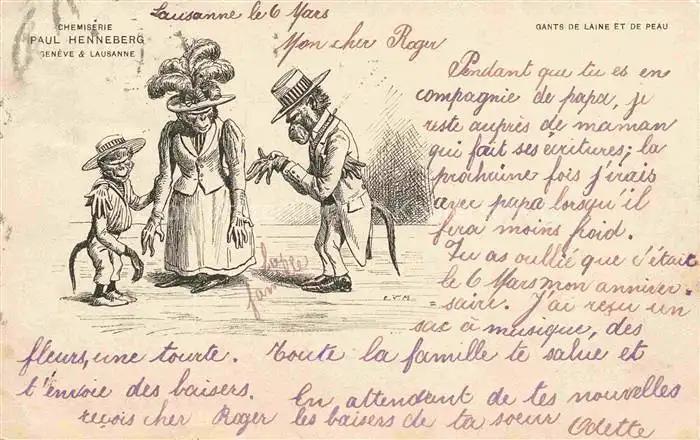 CHEMISERIE
PAUL HENNEBERG
GENÈVE & LAUSANNE
GANTS DE LAINE ET DE PEAU
Lausanne le 6 Mars
Mon cher Roger
Pendant que tu es en
compagnie de papa, je
reste auprès de maman
qui fait ses écritures; la
prochaine fois j'irais
avec papa lorsqu'il
fera moins froid.
Tu as oublié que c'était
le 6 Mars mon anniver-
saire. J'ai reçu un
sac à musique, des
fleurs, une tourte. Toute la famille te salue et
t'envoie des baisers. En attendant de tes nouvelles
reçois cher Roger les baisers de ta soeur
Odette
E.V.M.